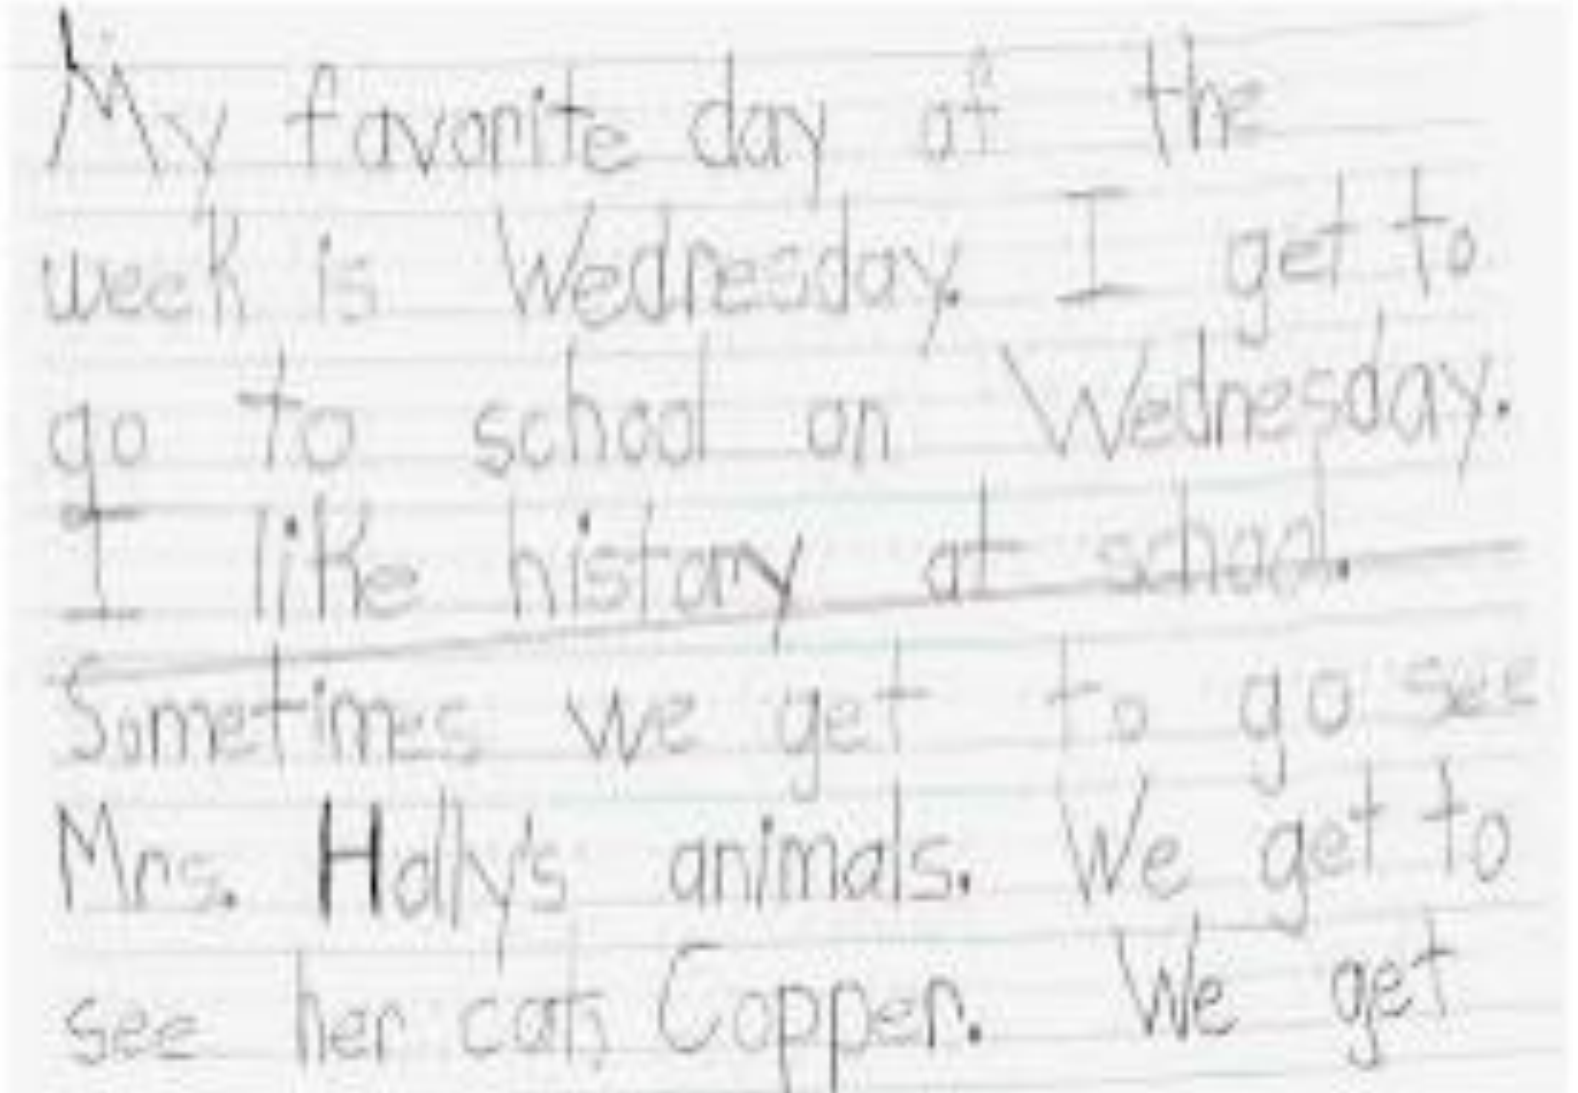 My favorite day of the
week is Wednesday. I get to
go to school on Wednesday.
I like history at school.
Sometimes we get to go see
Mrs. Holly's animals. We get to
see her cat, Copper. We get